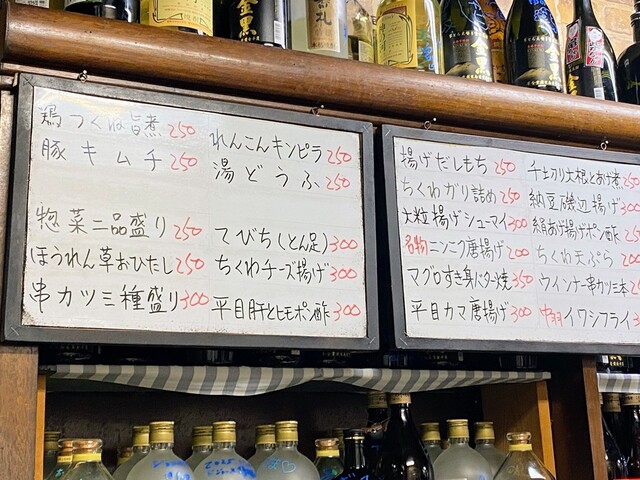 鶏つくね旨煮 250
豚キムチ 250
惣菜二品盛り 250
ほうれん草おひたし 250
串カツ三種盛り 300
れんこんキンピラ 250
湯どうふ 250
てびち(とん足) 300
ちくわチーズ揚げ 300
平目肝とヒモポン酢 300
揚げだしもち 250
ちくわガリ詰め 250
大粒揚げシューマイ 300
名物ニンニク唐揚げ 200
マグロすき身バター焼 350
平目カマ唐揚げ 300
千切り大根とあげ煮 250
納豆磯辺揚げ 300
絹あげ揚げポン酢 25
ちくわ天ぷら 200
ウインナー串カツ二本 2
イワシフライ 3